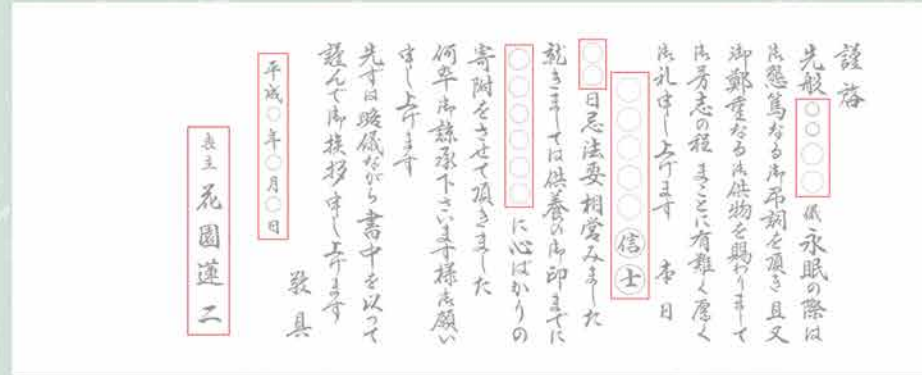 謹啓
先般○○○○儀 永眠の際は
御懇篤なる御弔詞を頂き 且又
御鄭重なる御供物を賜わりまして
御芳志の程 まことに有難く厚く
御礼申し上げます 本日
○○○○○○○信士
○○日忌法要相営みました
就きましては供養の御印までに
○○○○○○に心ばかりの
寄附をさせて頂きました
何卒御諒承下さいます様御願い
申し上げます
先ずは略儀ながら書中を以って
謹んで御挨拶申し上げます
敬具
平成○年○月○日
喪主 花園蓮二